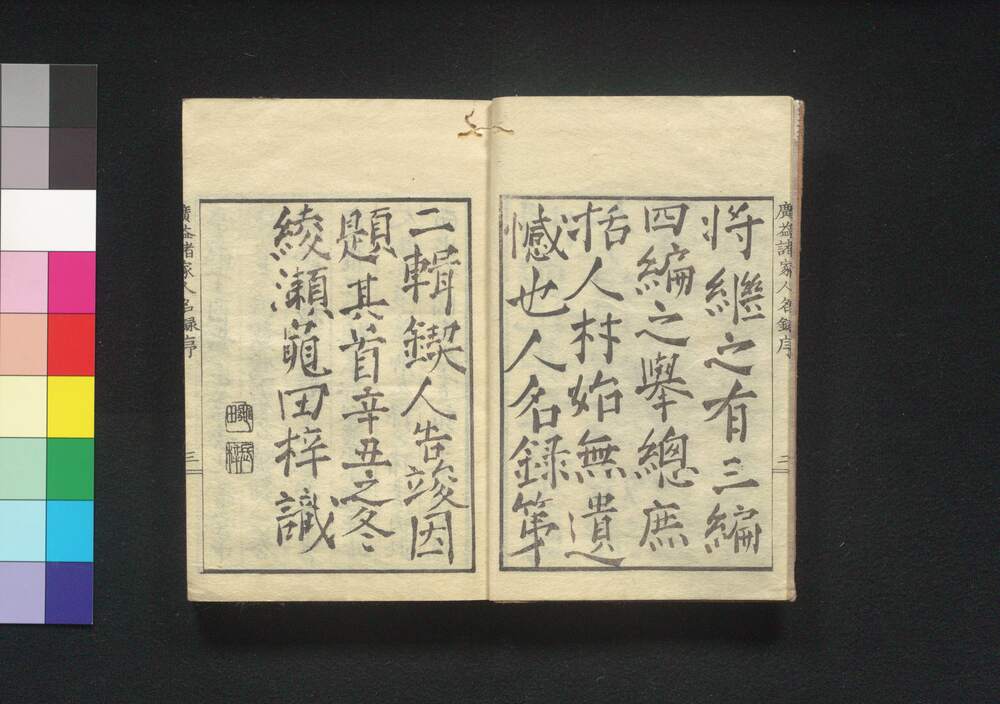 廣益諸家人名錄序
二
將繼之有三編
四編之擧總庶
括人材始無遺
憾也人名録第
二輯鍥人告竣因
題其首辛丑之冬
綾瀬龜田梓識
廣益諸家人名録序
三